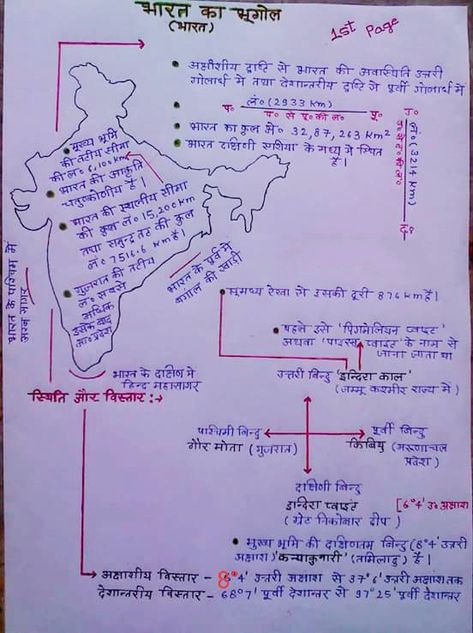 भारत का भूगोल
(भारत)
1st Page
• अक्षांशीय दृष्टि से भारत की अवस्थिति उत्तरी
गोलार्ध में तथा देशान्तरीय दृष्टि से पूर्वी गोलार्ध में
लं० (2933 km)
प० प० से पू० की लं० पू०
उ० लं० (3214 km) द०
• भारत का कुल क्षे० 32,87,263 Km²
• भारत दक्षिणी एशिया के मध्य में स्थित
है।
• मुख्य भूमि
की तटीय सीमा
की लं० 6,100 km
• भारत की आकृति
चतुष्कोणीय है।
• भारत की स्थलीय सीमा
की कुल लं० 15,200 km
तथा समुन्द्र तट की कुल
लं० 7516.6 Km है।
• गुजरात की तटीय
लं० सबसे
अधिक
इसके बाद
आ०प्रदेश
भारत के पश्चिम में
अरब सागर
भारत के पूर्व में
बंगाल की खाड़ी
भारत के दक्षिण में
हिन्द महासागर
• भूमध्य रेखा से उसकी दूरी 876 km है।
• पहले इसे 'पिग्मेलियन प्वाइंट'
अथवा 'पारसन प्वाइंट' के नाम से
जाना जाता था
उत्तरी बिन्दु 'इन्दिरा काल'
(जम्मू कश्मीर राज्य में)
स्थिति और विस्तार :→
पश्चिमी बिन्दु
गौर मोता (गुजरात)
पूर्वी बिन्दु
किबिथु (अरूणाचल
प्रदेश)
दक्षिणी बिन्दु
इन्दिरा प्वाइंट [6°4' उ० अक्षांश
(ग्रेट निकोबार द्वीप)
• मुख्य भूमि की दक्षिणतम बिन्दु (8°4' उत्तरी
अक्षांश) 'कन्याकुमारी' (तमिलाडु) है।
अक्षांशीय विस्तार – 8°4' उत्तरी अक्षांश से 37°6' उत्तरी अक्षांश तक
देशान्तरीय विस्तार – 68°7' पूर्वी देशान्तर से 97°25' पूर्वी देशान्तर